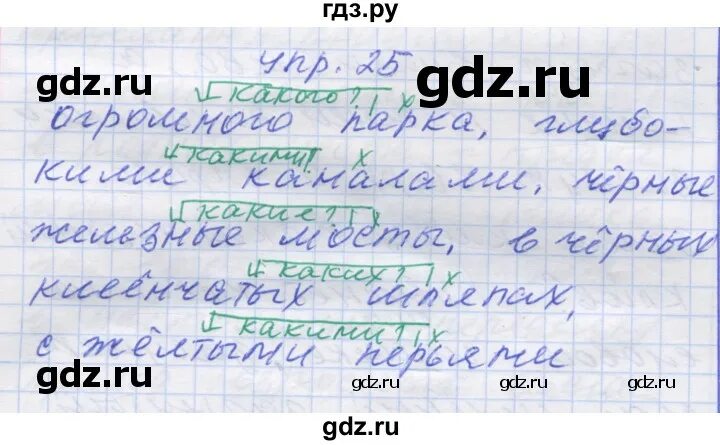 гдз.ру
упр. 25
gdz.ru
gdz.ru
какого?
огромного парка, глубо-
какими?
кими каналами, чёрные
какие?
железные мосты, в чёрных
каких?
клеёнчатых шляпах,
какими?
с жёлтыми перьями
gdz.ru
gdz.ru
gdz.ru
gdz.ru